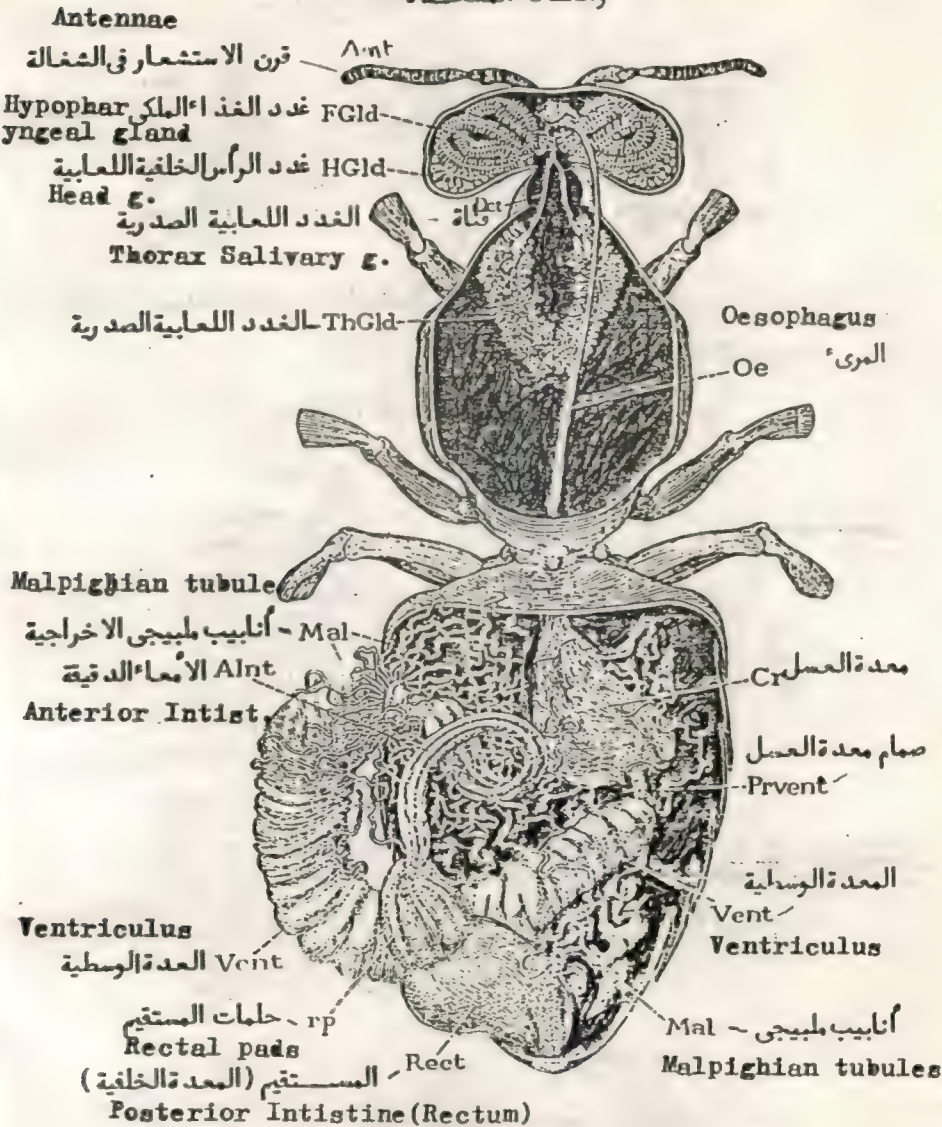 Antennae
قرن الاستشعار فى الشغالة Ant
Hypophar غدد الغذاء الملكى FGld
yngeal gland
غدد الرأس الخلفية اللعابية HGld
Head g.
قناة الغدد اللعابية الصدرية Dct
Thorax Salivary g.
الغدد اللعابية الصدرية ThGld
Oesophagus
المرىء
Oe
Malpighian tubule
أنابيب ملبيجى الاخراجية Mal
الأمعاء الدقيقة AInt
Anterior Intist.
Cr معدة العسل
صمام معدة العسل
Prvent
المعدة الوسطية
Vent
Ventriculus
Ventriculus
المعدة الوسطية Vent
حلمات المستقيم rp
Rectal pads
Mal أنابيب ملبيجى
Malpighian tubules
المستقيم (المعدة الخلفية) Rect
Posterior Intistine (Rectum)